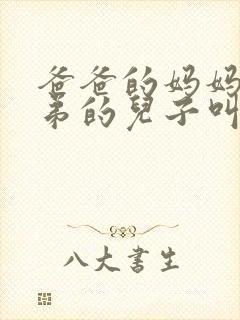 爸爸的妈妈
弟的兒子叫
八大書生